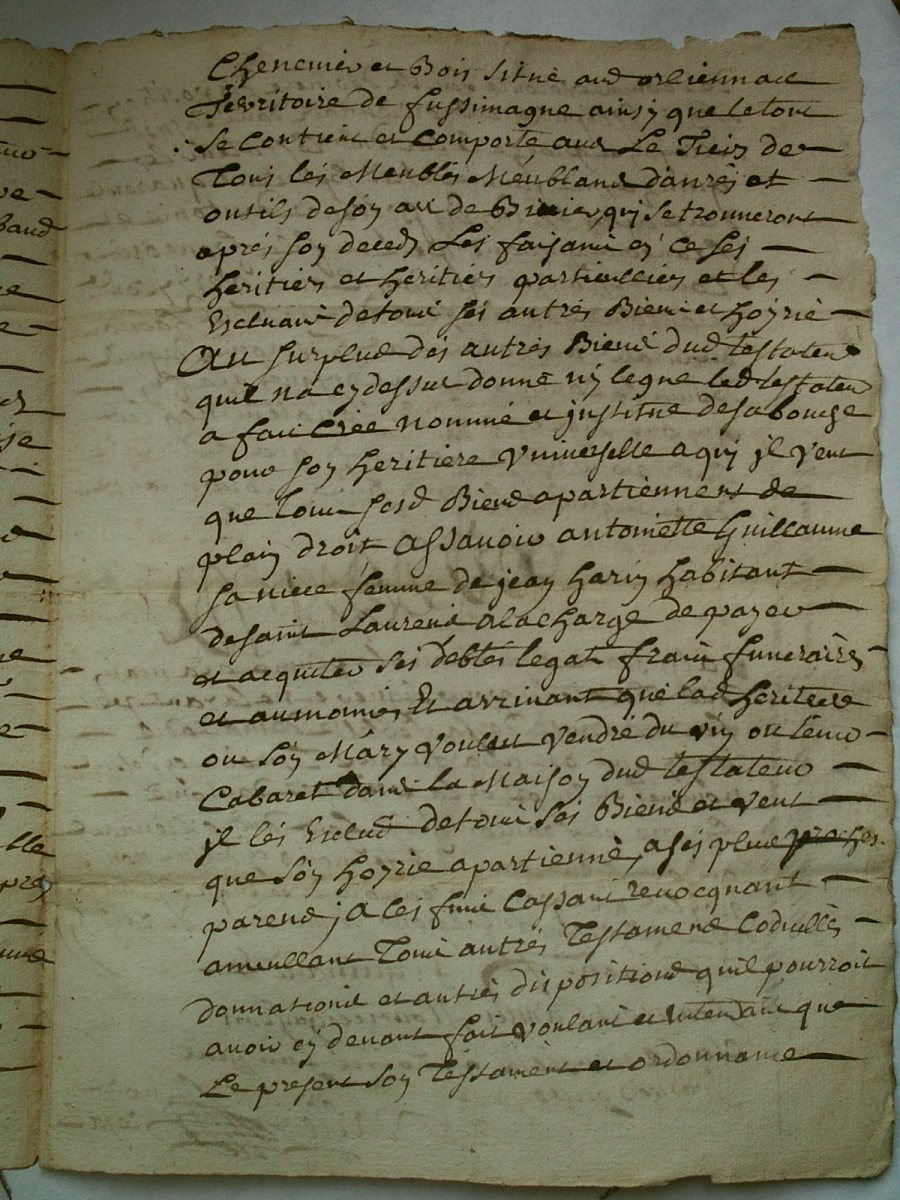 Chenevier et Bois situé aud orliennac
Terrritoire de fussimagne ainsy que le tout
se Contient et Comporte avec Le Tiers de
Tous lés Meublés Méublans danrés et
outils desoy au de qui se trouveront
aprés soy deced Les faisant ey ce ses
heritiers et heritiers particulliers et les
Excluant de tout sés autrés Biens et hoyrie
Au surplus dés autrés Biens dud testateur
quil na cy dessus donné ny legué led testateur
a fait Créé nommé et justitué de sa bouche
pour soy heritiere Vniverselle a quj jl veut
que tous sesd Biens apartiennent de
plain droit assavoir antoinette Guillaume
sa niece femme de jean harij habitant
de saint Laurens a la charge de payer
et acquiter sés debtés legat frais funerairés
et aumones Et arrivant que lad heritiere
ou soy Mary voulut vendré du viy ou tenir
Cabaret dans la Maisoy dud testateur
jl lés Exclud de tous sés Biens et veut
que soy hoyrie apartienné, a sés plus proches
parens j A cés fins Cassant revocquant
annullant Tous autrés Testamens Codicillés
donnations et autrés dispositions quil pourroit
avoir cy devant fait voulant et entendant que
Le present soy Testament et ordonnance